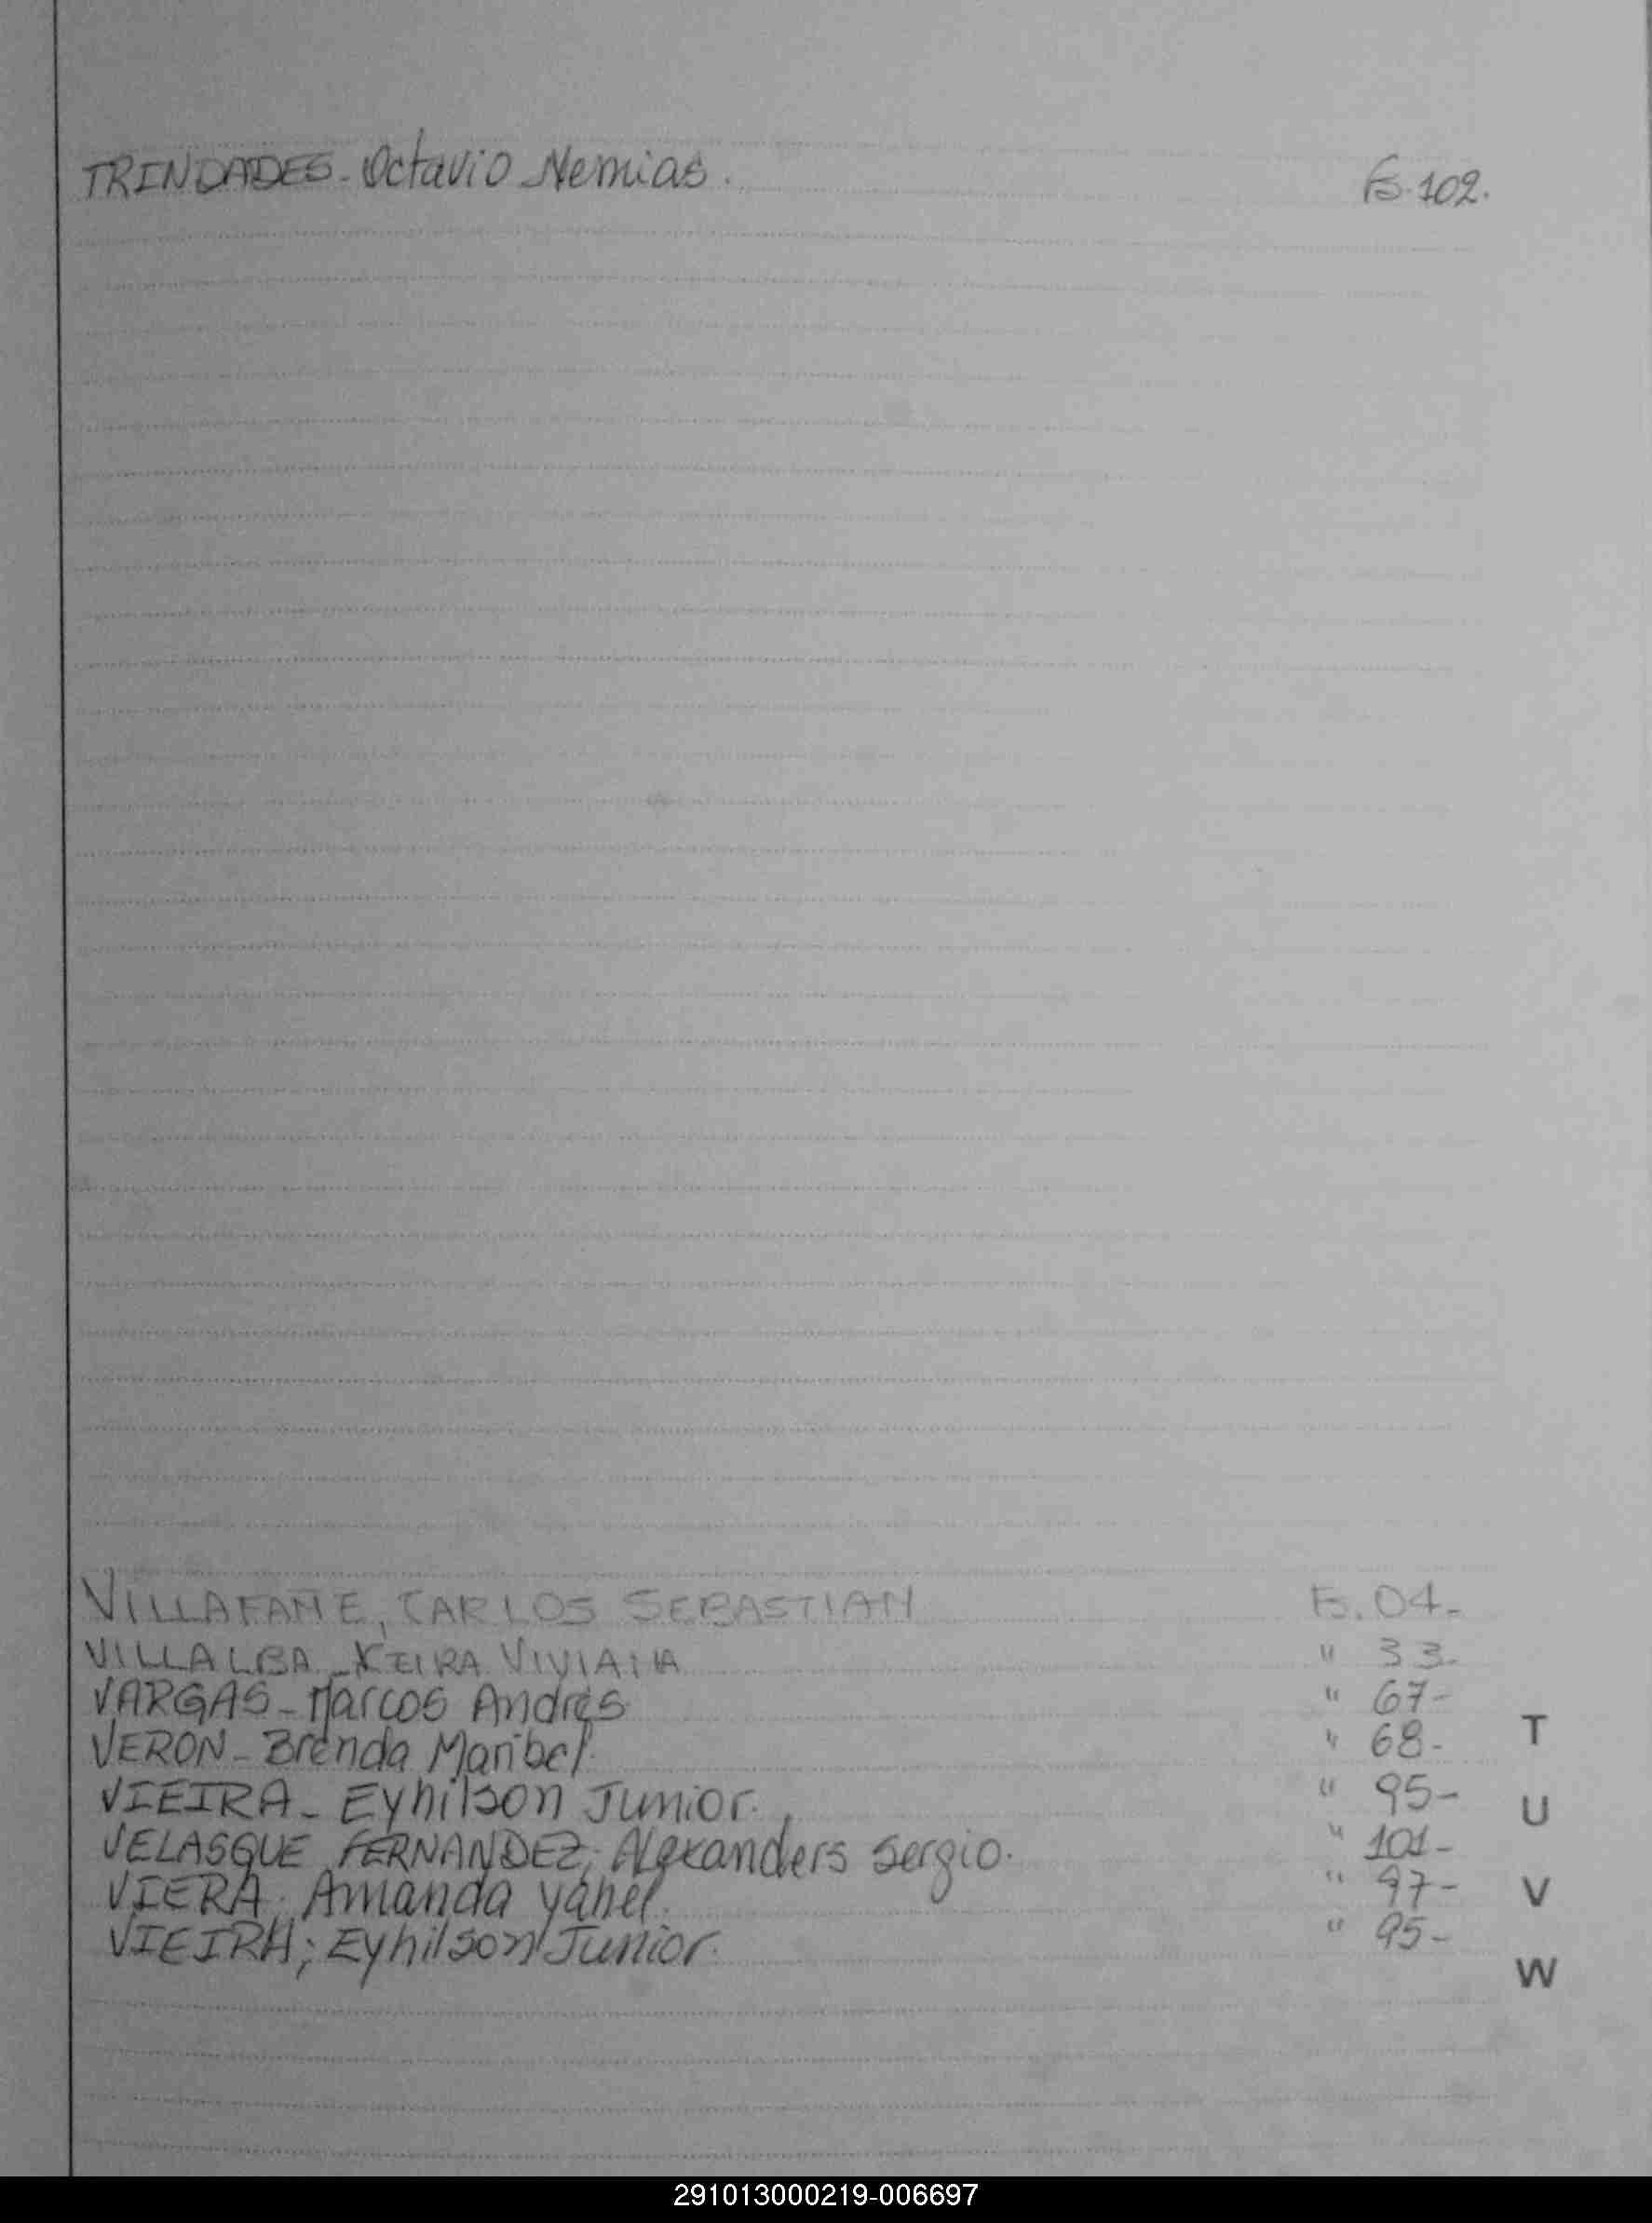 TRINDADES - Octavio Nemias. Fs. 102.
VILLAFAÑE, CARLOS SEBASTIAN Fs. 04.-
VILLALBA - KEIRA VIVIANA " 33.-
VARGAS - Marcos Andrés " 67-
VERON - Brenda Maribel. " 68-
T
VIEIRA - Eyhilson Junior. " 95-
U
VELASQUE FERNANDEZ; Alexanders Sergio. " 101-
VIERA. Amanda Yahel. " 97-
V
VIEIRA; Eyhilson Junior. " 95-
W
291013000219-006697